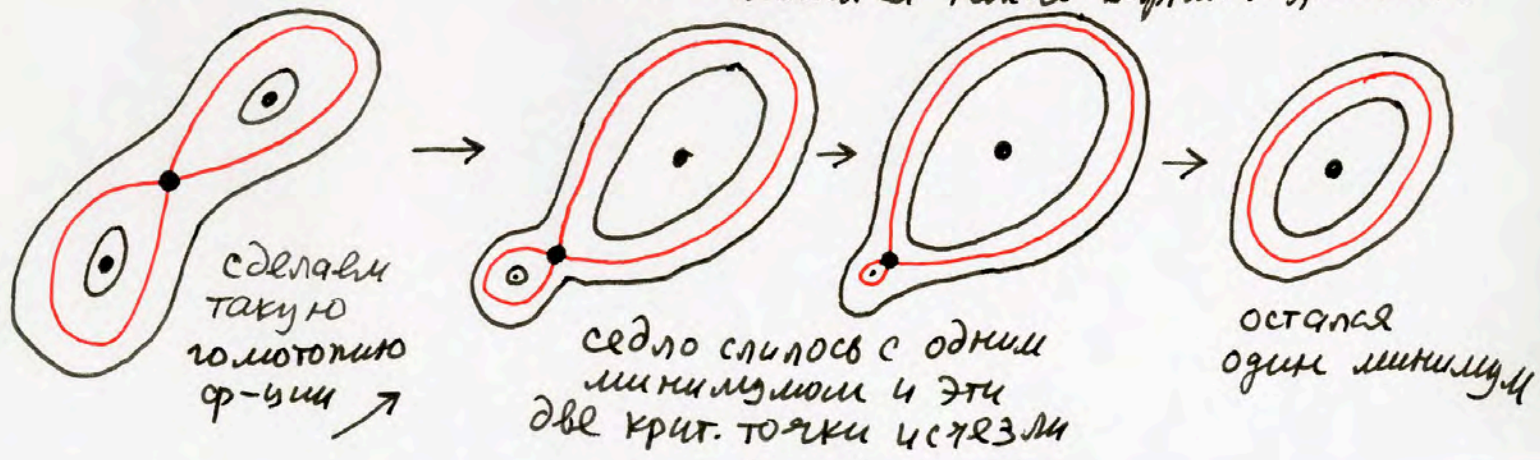 сделаем
такую
гомотопию
ф-ции
седло слилось с одним
минимумом и эти
две крит. точки исчезли
остался
один минимум